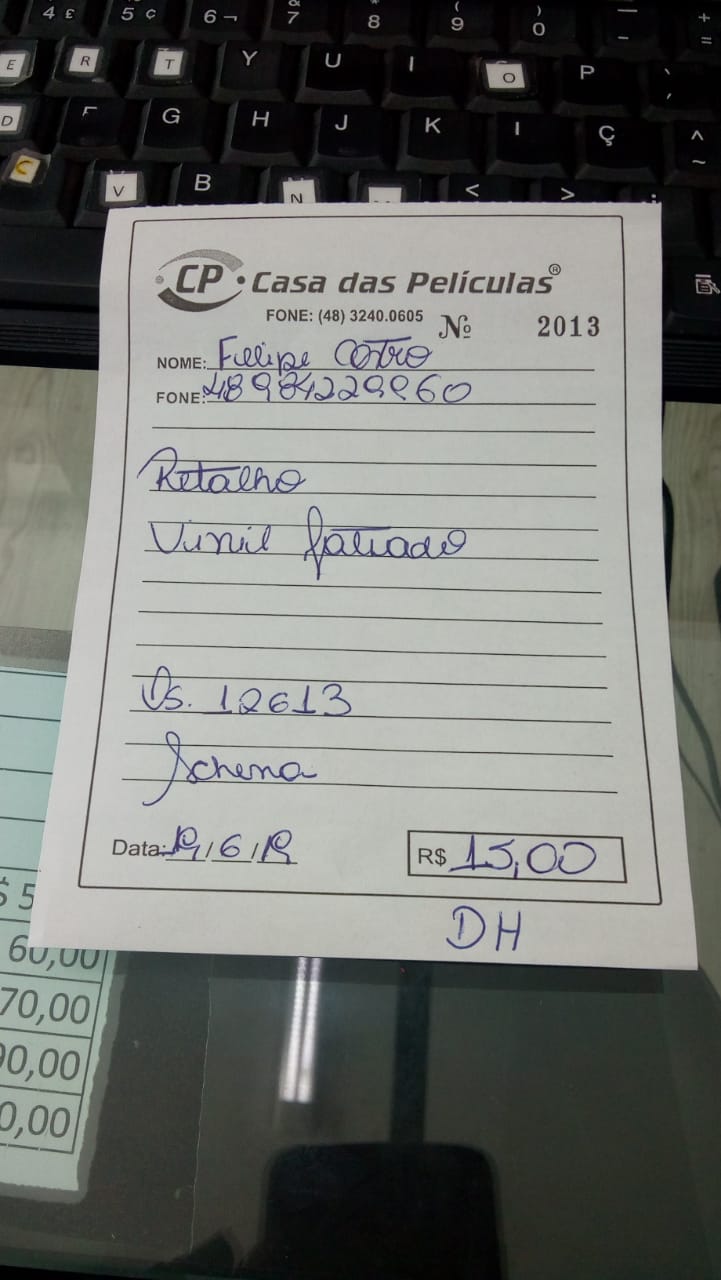 4 £ 5 ¢ 6 ¬ 7 & 8 9 ( 0 ) _ - + =
E R T Y U I O P ` ´
D F G H J K Ç ^ ~
C V B N < >
CP Casa das Películas®
FONE: (48) 3240.0605 Nº 2013
NOME: Fillipe
FONE:
Retalho
Vinil fatiado
Os. 12613
Schena
Data: 19/6/19 R$ 15,00
DH
$ 5
60,00
70,00
90,00
0,00